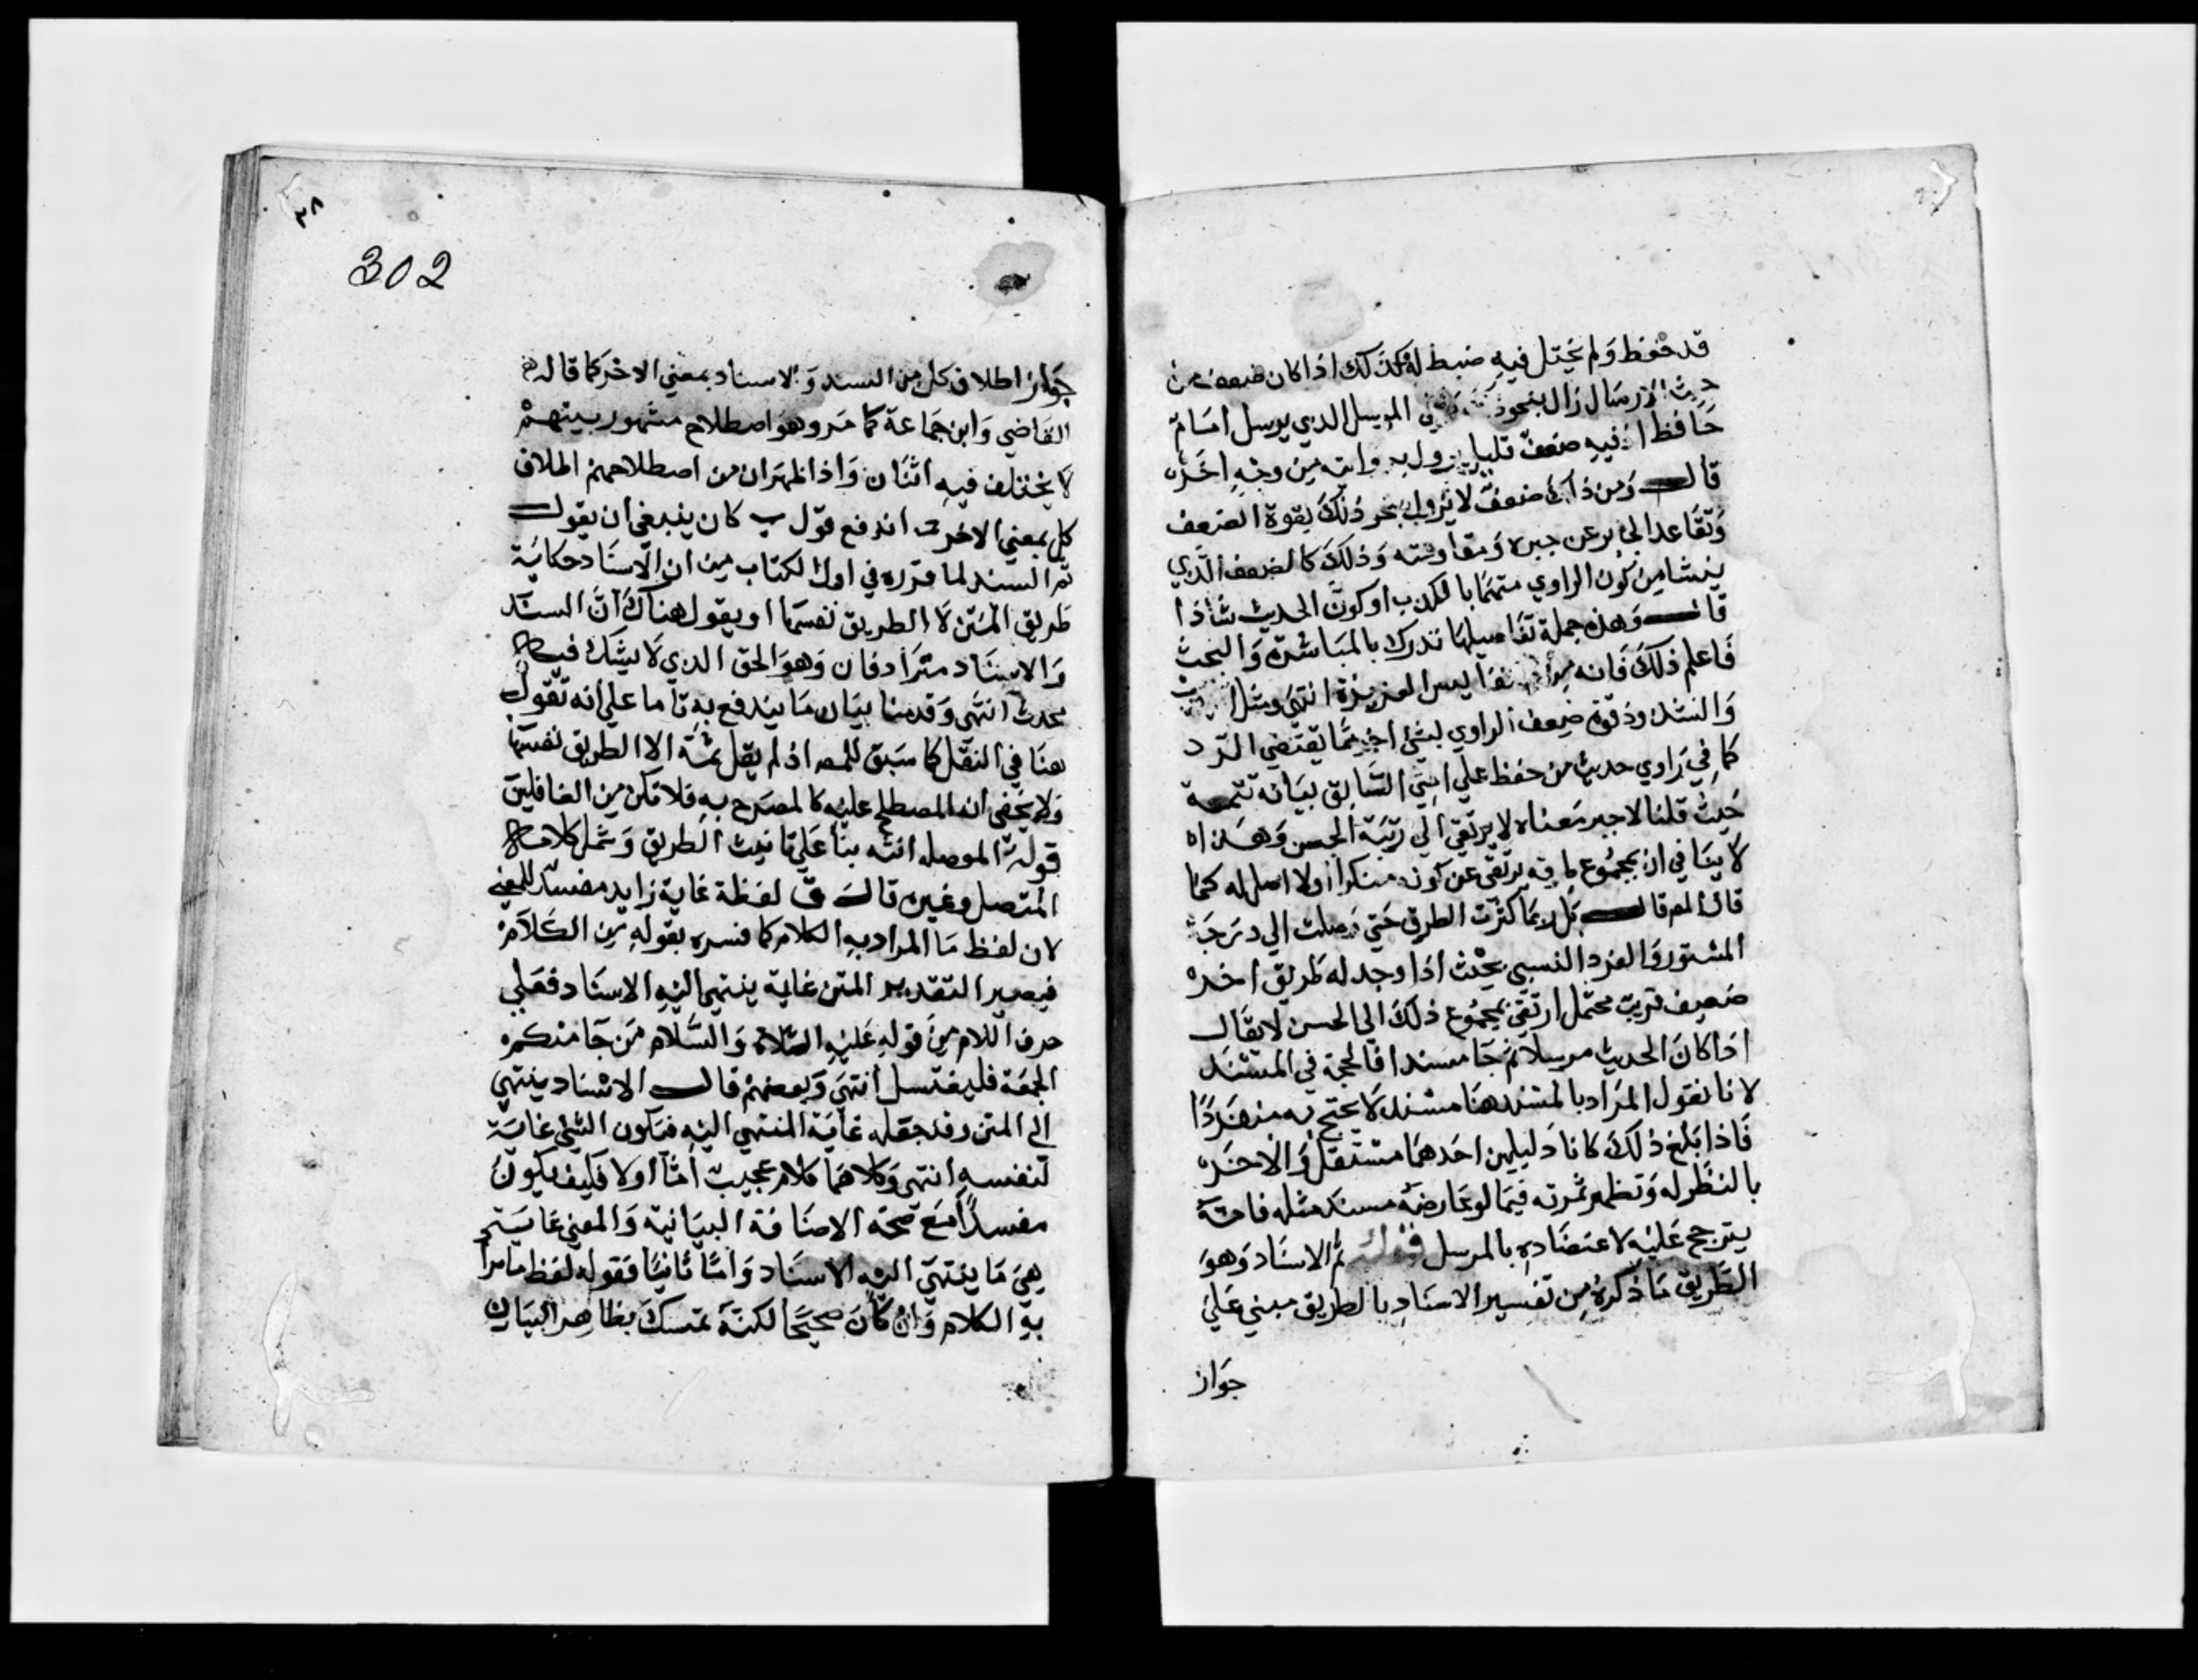 قد حفظ ولم يختل فيه ضبط له وكذلك اذا كان ضعفه من
حيث الارسال زال بنحو ذلك كما في المرسل الذي يرسل امام
حافظ اذ فيه ضعف قليل يزول بروايته من وجه اخر
قال ومن ذلك ضعف لا يزول بنحو ذلك لقوة الضعف
وتقاعد الجابر عن جبره ومقاومته وذلك كالضعف الذي
ينشا من كون الراوي متهما بالكذب او كون الحديث شاذا
قال وهذه جملة تفاصيلها تدرك بالمباشرة والبحث
فاعلم ذلك فانه من النفايس العزيزة انتهى ومثل
والشذوذ قوة ضعف الراوي بشي اخر مما يقتضي الرد
كما في راوي حديث من حفظ علي امتي السابق بيانه تتمة
حيث قلنا لا جبر معناه لا يرتقي الي رتبة الحسن وهذا
لا ينافي ان بمجموع طرقه يرتقي عن كونه منكرا او لا اصل له كما
قال المم قال بل ربما كثرت الطرق حتي وصلت الي درجة
المستور والفرد النسبي بحيث اذا وجد له طريق اخر
ضعيف قريب محتمل ارتقي بمجموع ذلك الي الحسن لا يقال
اذا كان الحديث مرسلا ثم جا مسندا فالحجة في المسند
لانا نقول المراد بالمسند هنا مسند لا يحتج به منفردا
فاذا بلغ ذلك كانا دليلين احدهما مستقل والاخر
بالنظر له وتظهر ثمرته فيما لو عارضه مسند مثله فانه
يترجح عليه لاعتضاده بالمرسل قوله ثم الاسناد وهو
الطريق ما ذكره من تفسير الاسناد بالطريق مبني علي
جواز
٣٨
302
جواز اطلاق كل من السند والاسناد بمعني الاخر كما قاله
القاضي وابن جماعة كما مر وهو اصطلاح مشهور بينهم
لا يختلف فيه اثنان واذا ظهر ان من اصطلاحهم اطلاق
كل بمعني الاخر اندفع قول ب كان ينبغي ان يقول
ثم السند لما قرره في اول الكتاب من ان الاسناد حكاية
طريق المتن لا الطريق نفسها او يقول هناك ان السند
والاسناد مترادفان وهو الحق الذي لا يشك فيه
محدث انتهى وقدمنا بيان ما يندفع به تاما علي انه تقول
هنا في النقل كما سبق للمص اذ لم يقل ثمة الا الطريق نفسها
ولا يخفى ان المصطلح عليه كالمصرح به فلا تكن من الغافلين
قوله الموصلة انثه بنا علي تانيث الطريق وشمل كلامه
المتصل وغيره قال ق لفظة غاية زايد مفسد للمعني
لان لفظ ما المراد به الكلام كما فسره بقوله من الكلام
فيصير التقدير المتن غاية ينتهي اليه الاسناد فعلي
حرف اللام من قوله عليه الصلاة والسلام من جا منكم
الجمعة فليغتسل انتهى وبعضهم قال الاسناد ينتهي
الي المتن وقد جعله غاية المنتهي اليه فيكون الشي غاية
لنفسه انتهى وكلاهما كلام عجيب اما اولا فكيف يكون
مفسدا مع صحة الاضافة البيانية والمعني غاية
هي ما ينتهي اليه الاسناد واما ثانيا فقوله لفظ ما مراد
به الكلام وان كان صحيحا لكنه تمسك بظاهر البيان